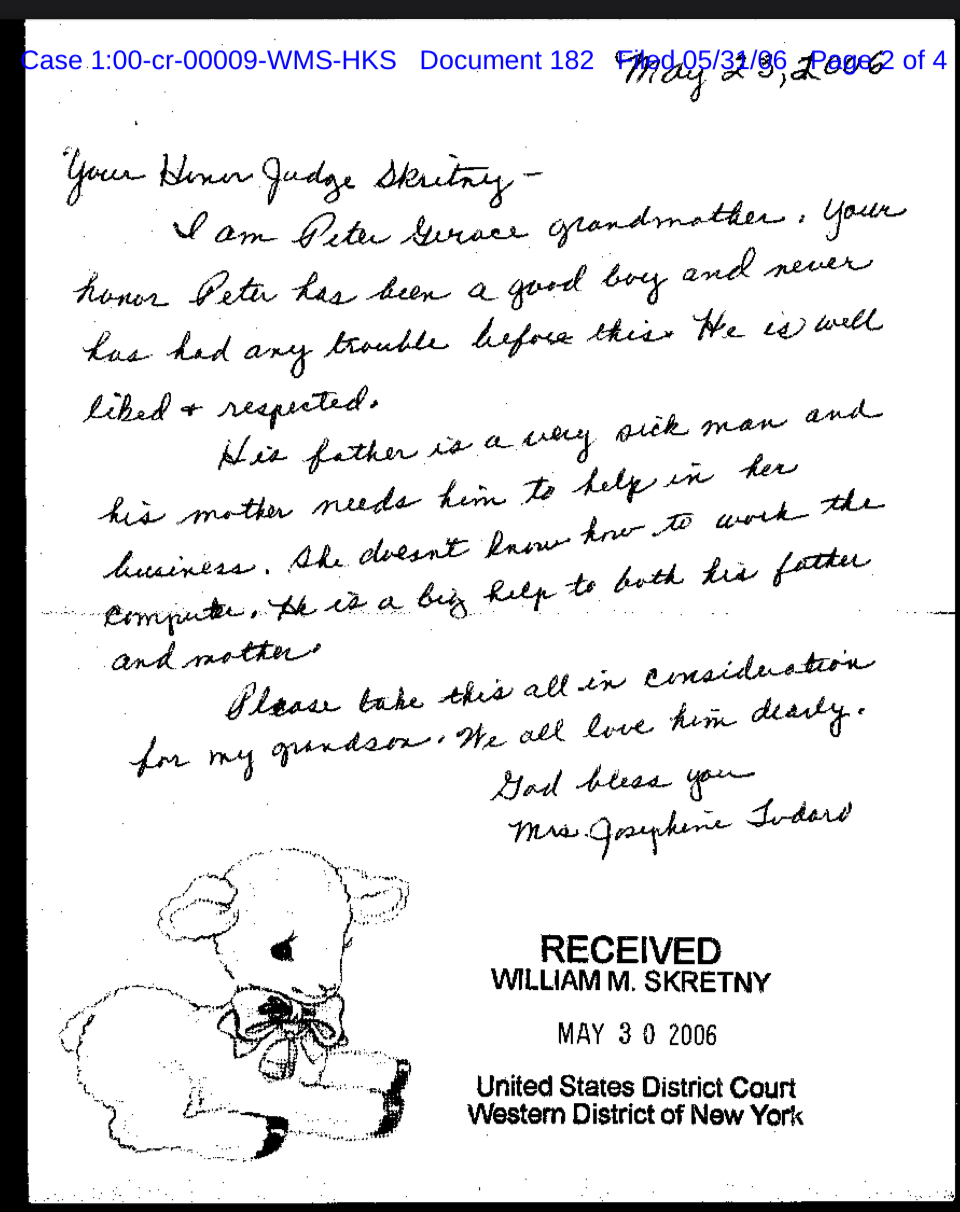 Case 1:00-cr-00009-WMS-HKS Document 182 Filed 05/31/06 Page 2 of 4
May 23, 2006
Your Honor Judge Skritny -
I am Peter Gerace grandmother. Your
honor Peter has been a good boy and never
has had any trouble before this. He is well
liked + respected.
His father is a very sick man and
his mother needs him to help in her
business. She doesn't know how to work the
computer. He is a big help to both his father
and mother.
Please take this all in consideration
for my grandson. We all love him dearly.
God bless you
Mrs. Josephine Todaro
RECEIVED
WILLIAM M. SKRETNY
MAY 30 2006
United States District Court
Western District of New York